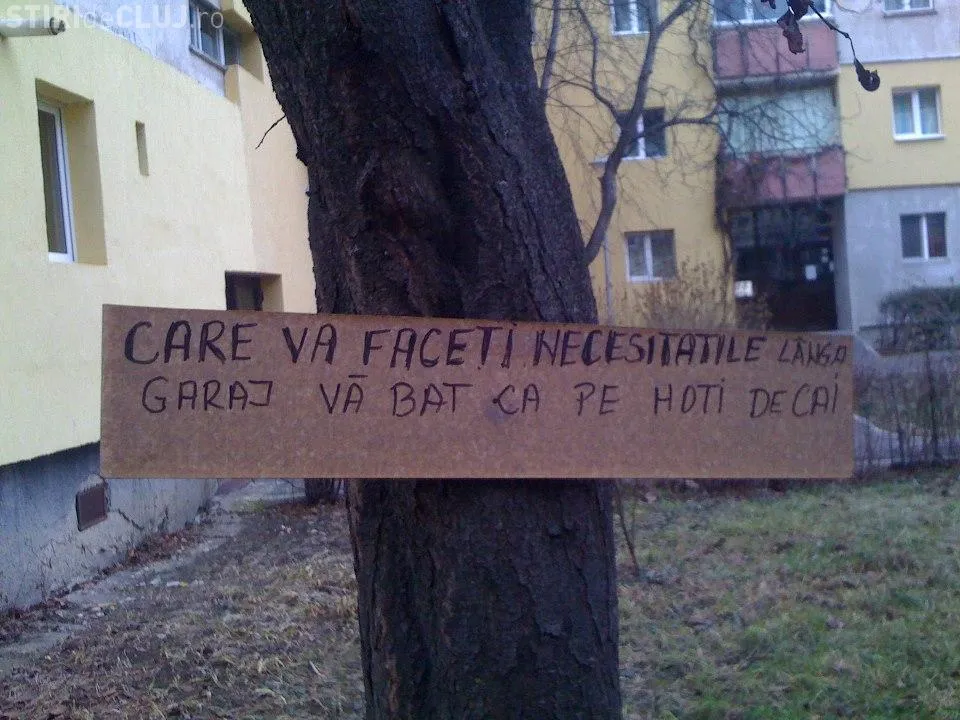 ȘTIRIdeCLUJ.ro
CARE VA FACEȚI NECESITATILE LÂNGA
GARAJ VĂ BAT CA PE HOTI DE CAI